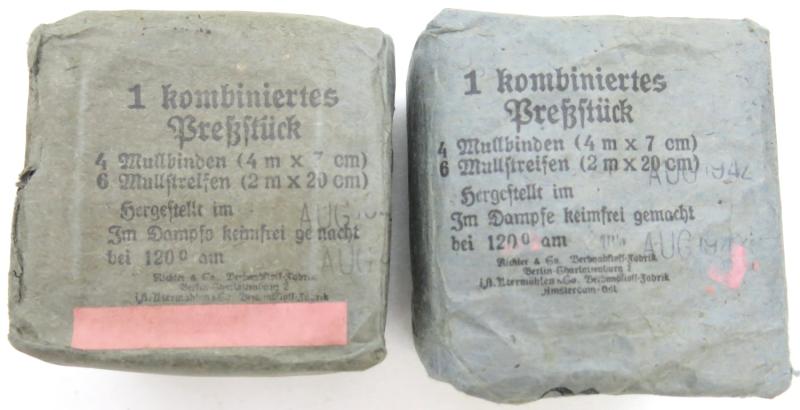 1 kombiniertes
Preßstück
4 Mullbinden (4 m x 7 cm)
6 Mullstreifen (2 m x 20 cm)
Hergestellt im AUG
Im Dampfe keimfrei gemacht
bei 120° am AUG
Richter & Co. Verbandstoff-Fabrik
Berlin-Charlottenburg 2
i.A. Utermöhlen & Co. Verbandstoff-Fabrik
1 kombiniertes
Preßstück
4 Mullbinden (4 m x 7 cm)
6 Mullstreifen (2 m x 20 cm)
Hergestellt im AUG 1942
Im Dampfe keimfrei gemacht
bei 120° am AUG 194
Richter & Co. Verbandstoff-Fabrik
Berlin-Charlottenburg 2
i.A. Utermöhlen & Co. Verbandstoff-Fabrik
Amsterdam-Ost